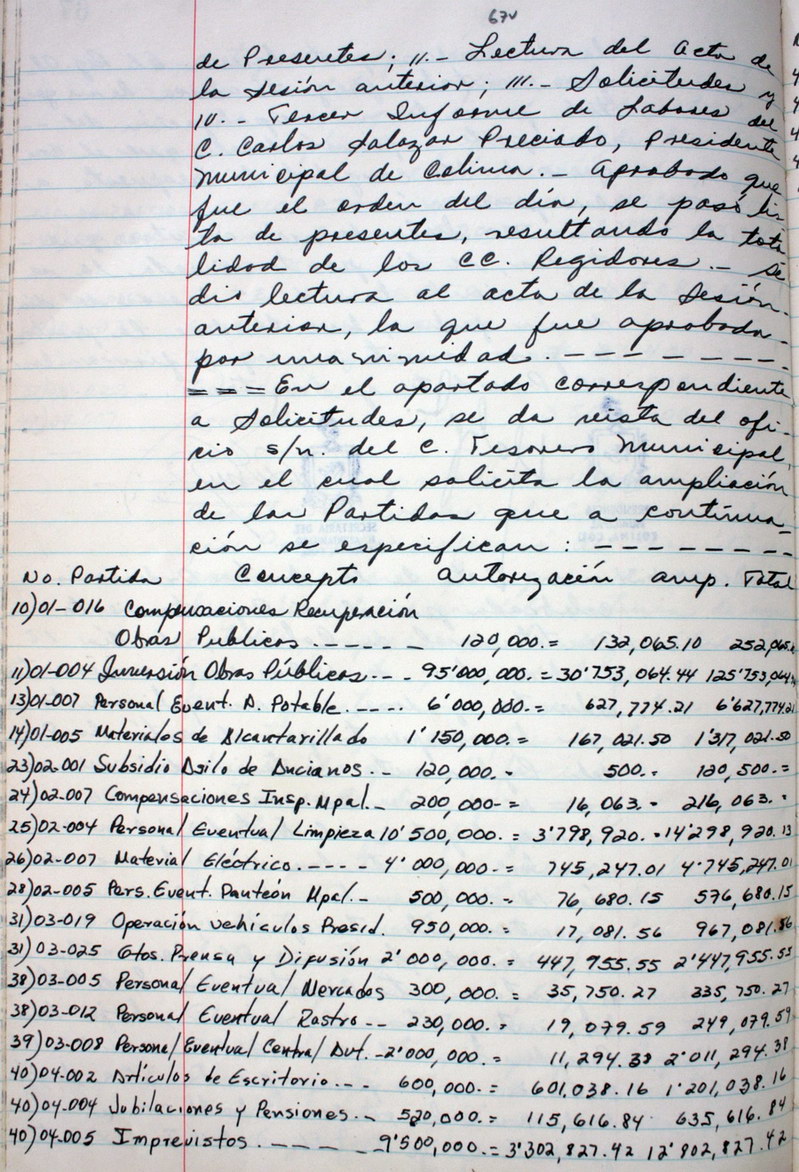 67v
de Presentes; II.- Lectura del Acta de
la sesión anterior; III.- Solicitudes y
IV.- Tercer Informe de Labores del
C. Carlos Salazar Preciado, Presidente
Municipal de Colima.- Aprobado que
fue el orden del día, se pasó lis-
ta de presentes, resultando la tota
lidad de los CC. Regidores.- Se
dio lectura al acta de la Sesión
anterior, la que fue aprobada
por unanimidad. - - - - - - -
= = = En el apartado correspondiente
a Solicitudes, se da vista del ofi-
cio s/n. del C. Tesorero Municipal,
en el cual solicita la ampliación
de las Partidas que a continua-
ción se especifican: - - - - - - - -
No. Partida Concepto autorización amp. Total
10)01-016 Compensaciones Recuperación
Obras Publicas - - - - - - 120,000.= 132,065.10 252,065.
11)01-004 Inversión Obras Públicas - - - 95'000,000.= 30'753,064.44 125'753,064.
13)01-007 Personal Event. A. Potable. - - - - 6'000,000.= 627,774.21 6'627,774.21
14)01-005 Materiales de Alcantarillado 1'150,000.= 167,021.50 1'317,021.50
23)02-001 Subsidio Asilo de Ancianos.- - 120,000.- 500.- 120,500.=
24)02-007 Compensaciones Insp. Mpal.- 200,000-= 16,063.- 216,063.-
25)02-004 Personal Eventual Limpieza 10'500,000.= 3'798,920.- 14'298,920.13
26)02-007 Material Eléctrico. - - - - 4'000,000.= 745,247.01 4'745,247.01
28)02-005 Pers. Event. Panteón Mpal.- 500,000.- 76,680.15 576,680.15
31)03-019 Operación vehículos Presid. 950,000.= 17,081.56 967,081.56
31)03-025 Gtos. Prensa y Difusión 2'000,000.= 447,955.55 2'447,955.55
38)03-005 Personal Eventual Mercados 300,000.= 35,750.27 335,750.27
38)03-012 Personal Eventual Rastro - - 230,000.= 19,079.59 249,079.59
39)03-008 Personal Eventual Central Aut. -2'000,000.= 11,294.38 2'011,294.38
40)04-002 Artículos de Escritorio - - - 600,000.= 601,038.16 1'201,038.16
40)04-004 Jubilaciones y Pensiones.- 520,000.= 115,616.84 635,616.84
40)04-005 Imprevistos. - - - - - 9'500,000.= 3'302,827.42 12'802,827.42